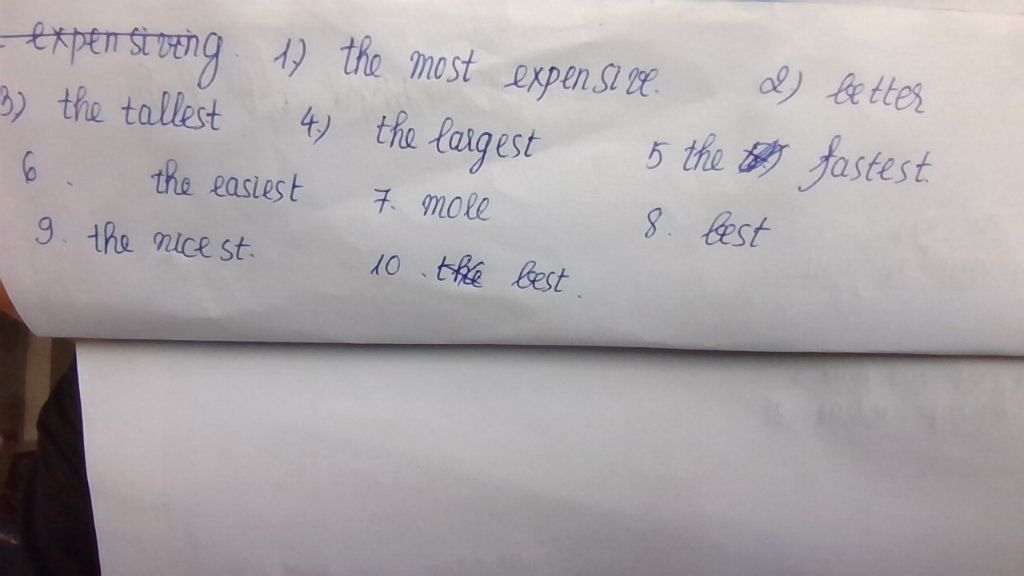 expensiveing. 1) the most expensive. 2) better
3) the tallest 4.) the largest 5 the fastest.
6. the easiest 7. more 8. best
9. the nicest. 10. the best.